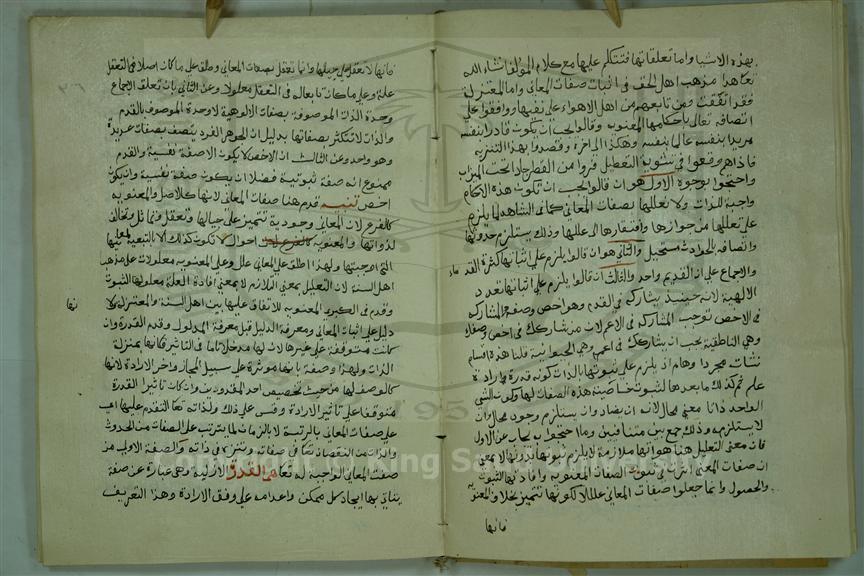 بهذه الاشيا واما تعلقاتها فنتكلم عليها مع كلام المؤلف ان شاء الله
تعا هذا مذهب اهل الحق في اثبات صفات المعاني واما المعتزلة
فقد اتفقت ومن تابعهم من اهل الاهواء على نفيها ووافقوا على
اتصافه تعالى باحكامها المعنويه وقالوا يجب ان يكون قادرا بنفسه
مريدا بنفسه عالما بنفسه وهكذا الى اخره وقصدوا بهذا التنزيه
فاذاهم وقعوا في التعطيل فروا من القطر جا تحت الميزاب
واحتجوا بوجوه الاول هو ان قالوا يجب ان تكون هذه الاحكام
واجبة للذات ولا نعللها بصفات المعاني كما في الشاهد لما يلزم
على تعليلها من جوازها وافتقارها الى عللها وذلك يستلزم حدوثها
واتصافه بالحوادث مستحيل والثاني هو ان قالوا يلزم على اثباتها كثرة القدماء
والاجماع على ان القديم واحد والثالث ان قالوا يلزم على اثباتها تعدد
الالهية لانه حينيذ يشاركه في القدم وهو اخص وصفه والمشاركه
في الاخص توجب المشاركه في الاعم لان من شاركك في اخص وصفك
وهي الناطقية يجب ان يشاركك في اعمي وهي الحيوانية قلنا هذه اقسام
علم ثم كذلك ما بعدها لثبوت خاصية هذه الصفات لها وكون الشي
الواحد ذاتا معنى محال لانه ان يضاد وان يستلزم وجود محل وان
لا يستلزمه وذلك جمع بين متنافيين وما احتجوا به يجاب عن الاول
فان معنى التعليل هنا هو انها ملازمة لا يلزم ثبوتها بدونها لا بمعنى
ان صفات المعنى اثرت في ثبوت الصفات المعنويه وافادتها الثبوت
والحصول وانما جعلوا صفات المعاني عللا لكونها تتميز بخلاف المعنويه
فانها
فانها لا تعقل على حيالها وانما تعقل بصفات المعاني وطلق على ما كان اصلا في التعقل
علة وعلى ما كان تابعا له في التعقل معلولا وعن الثاني بان تعلق الاجماع
وحدة الذات الموصوفة بصفات الالوهية لا وحدة الموصوف بالقدم
والذات لا تتكثر بصفاتها بدليل ان الجوهر الفرد يتصف بصفات عديدة
وهو واحد وعن الثالث ان الاخص لا يكون الا صفة نفسية والقدم
ممنوع انه صفة ثبوتية فضلا ان يكون صفة نفسية وان يكون
اخص تنبيه قدم هنا صفات المعاني لانها كالاصل والمعنويه
كالفرع لان المعاني وجودية تتميز على حيالها وتعقل فتماثل وتخالف
لذواتها والمعنويه احوال لا تكون كذلك الا بالتبعية لمعانيها
التي اوجبتها ولهذا اطلق على المعاني علل وعلى المعنويه معلولات على مذهب
اهل السنة لان التعليل بمعنى التلازم لا بمعنى افادة العلة معلولها الثبوت
وقدم في الكبرى المعنويه للاتفاق عليها بين اهل السنة والمعتزله ولانها
دليل على اثبات المعاني ومعرفة الدليل قبل معرفة المدلول وقدم القدرة وان
كانت متوقفة على غيرها لان لها مدخلا تاما في التاثير فكانها بمنزلة
الذات ولهذا وصفة بانها موثرة على سبيل المجاز واخر الارادة لانها
كالوصف لها من حيث تخصيص احد المقدورين وان كان تاثير القدرة
متوقفا على تاثير الارادة وقس على ذلك ولذاته تعا التقدم عليها اعني
على صفات المعاني بالرتبة لا بالزمان لما يترتب على الصفات من الحدوث
والذات من النقصان تعا في صفاته وتنزه في ذاته والصفة الاولى من
صفت المعاني الواجبة له تعا هي القدرة الازلية وهي عبارة عن صفة
يتاتى بها ايجاد كل ممكن واعدامه على وفق الارادة وهذا التعريف